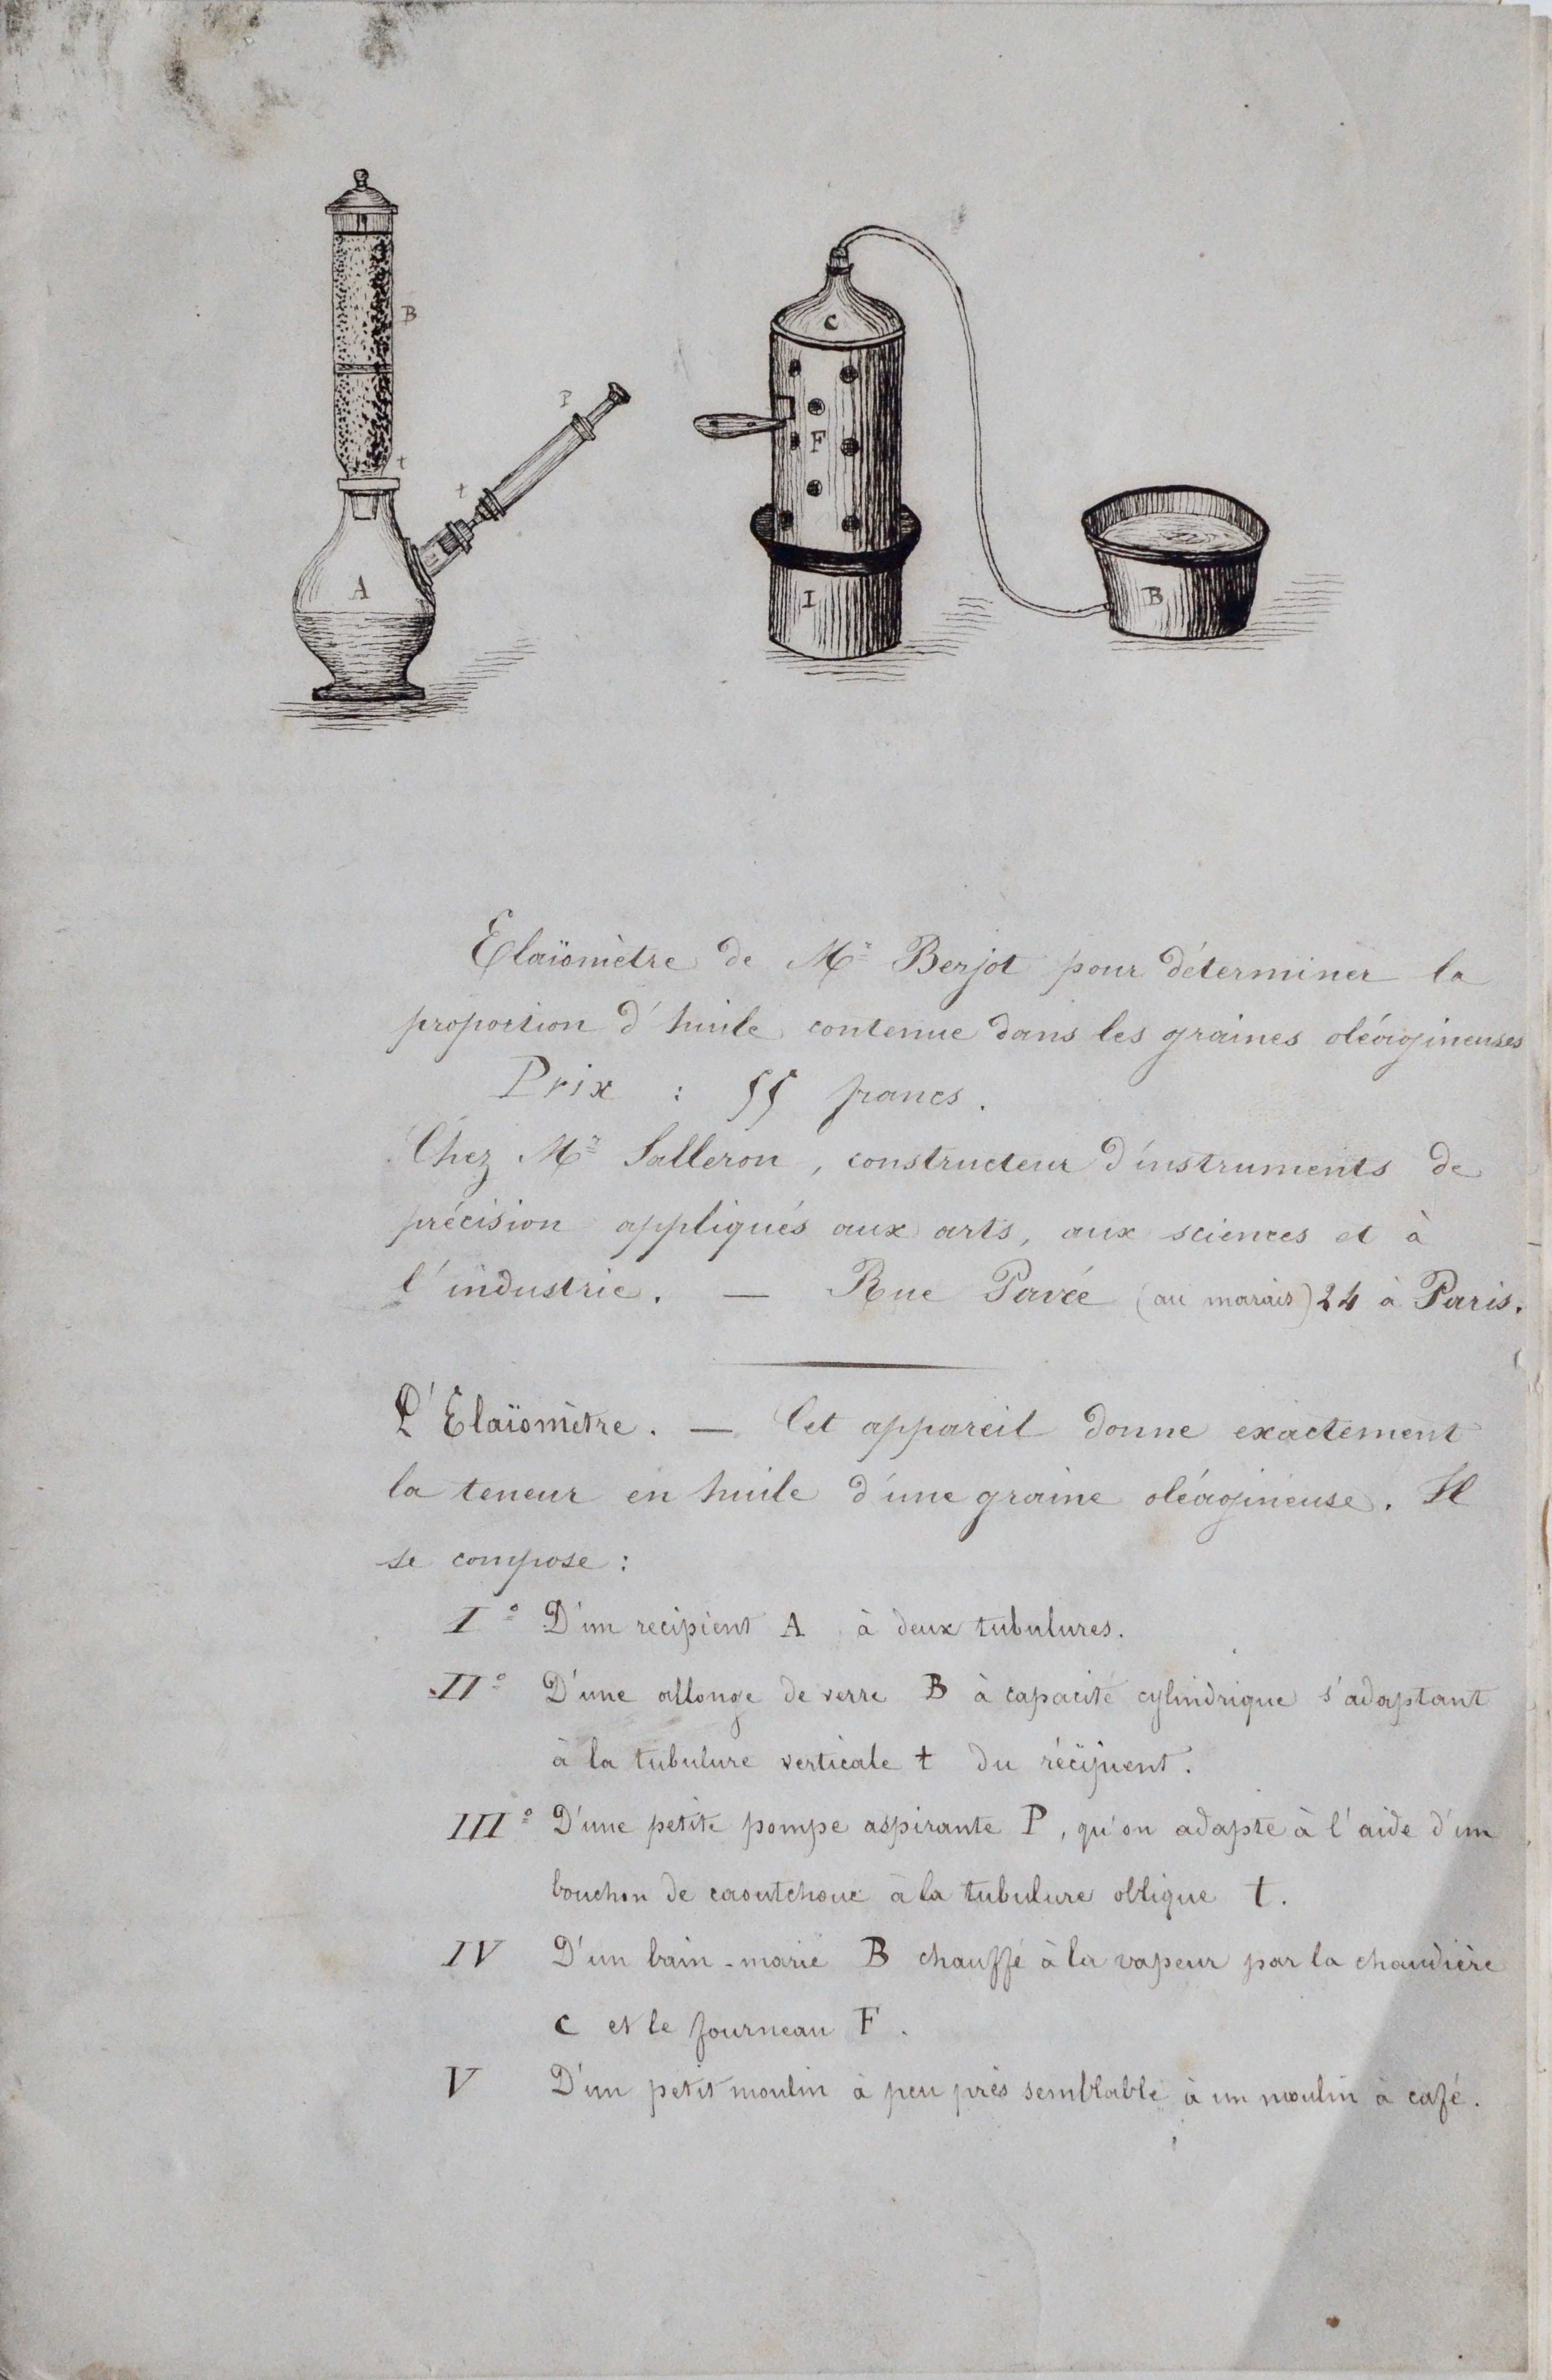 B
P
t
t
A
C
F
I
B
Elaïomètre de Mr Berjot pour déterminer la
proportion d'huile contenue dans les graines oléagineuses
Prix : 55 francs.
Chez Mr Salleron, constructeur d'instruments de
précision appliqués aux arts, aux sciences et à
l'industrie. — Rue Pavée (au marais) 24 à Paris.
L'Elaïomètre. — Cet appareil donne exactement
la teneur en huile d'une graine oléagineuse. Il
se compose :
I° D'un recipient A à deux tubulures.
II° D'une allonge de verre B à capacité cylindrique s'adaptant
à la tubulure verticale t du récipient.
III° D'une petite pompe aspirante P, qu'on adapte à l'aide d'un
bouchon de caoutchouc à la tubulure oblique t.
IV D'un bain-marie B chauffé à la vapeur par la chaudière
C et le fourneau F.
V D'un petit moulin à peu près semblable à un moulin à café.